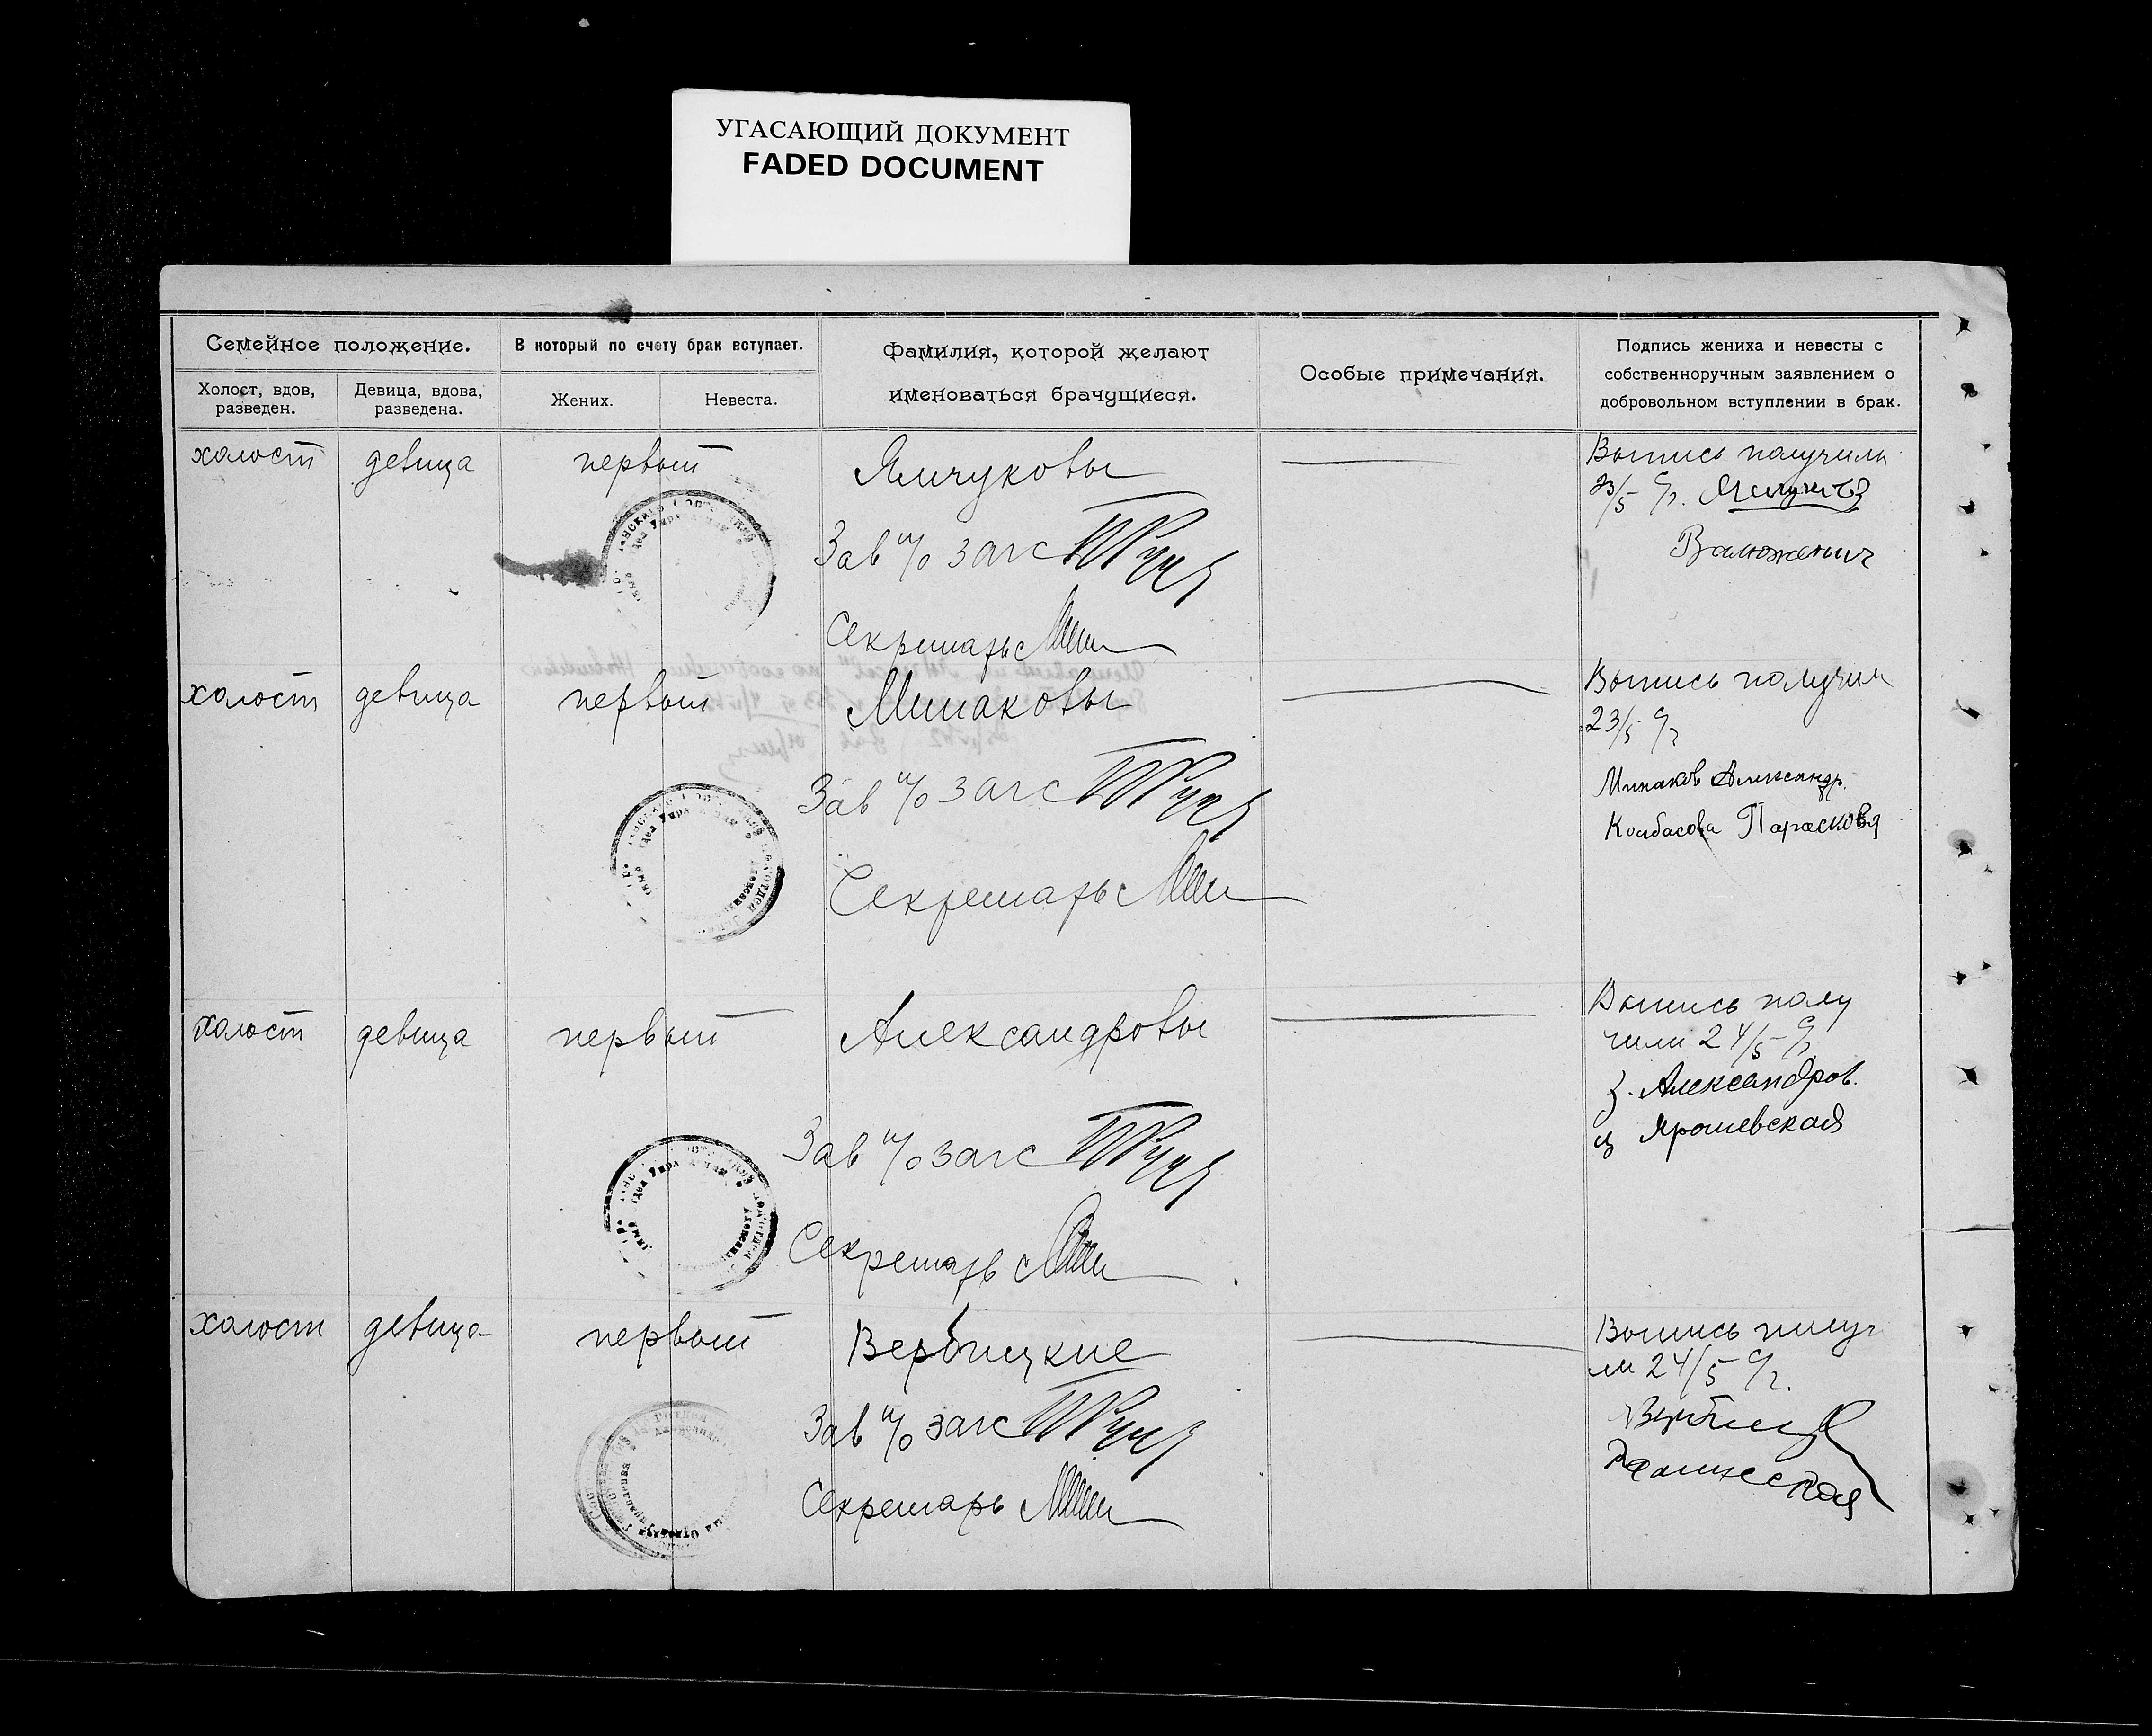 УГАСАЮЩИЙ ДОКУМЕНТ
FADED DOCUMENT
Семейное положение.
В который по счету брак вступает.
Фамилия, которой желают
именоваться брачущиеся.
Особые примечания.
Подпись жениха и невесты с
собственноручным заявлением о
добровольном вступлении в брак.
Холост, вдов,
разведен.
Девица, вдова,
разведена.
Жених.
Невеста.
холост девица первый
Зав п/о загс
Секретарь
Выпись получили
23/5 с/г.
холост девица первый Минаковы
Зав п/о загс
Секретарь
Выпись получили
23/5 с/г
Минаков Александр.
Колбасова Парасковя
холост девица первый Александровы
Зав п/о загс
Секретарь
Выпись полу
чили 24/5 с/г.
Александров.
Ярошевская
холост девица первый Вербицкие
Зав п/о загс
Секретарь
Выпись получ
ли 24/5 с/г.